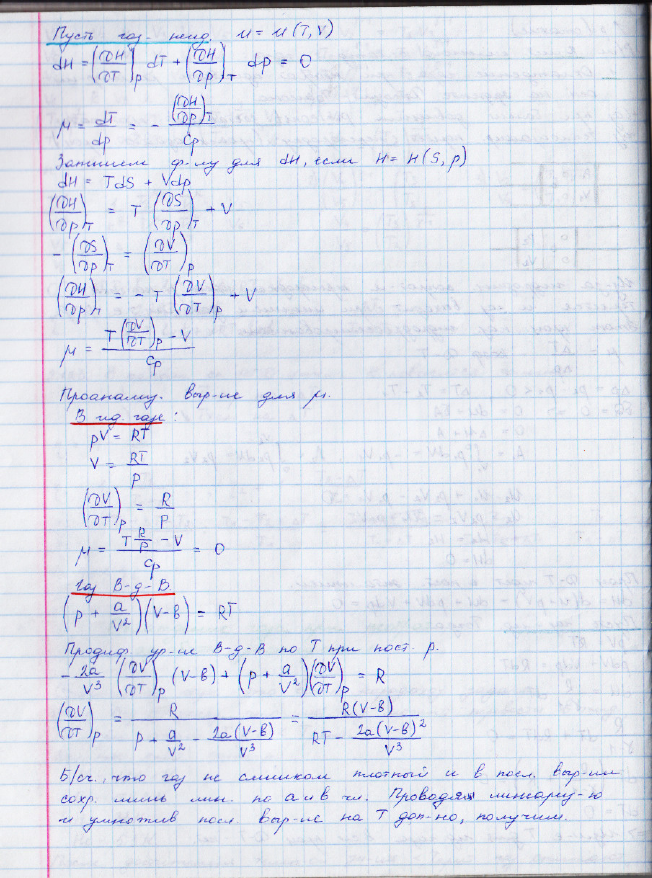 Пусть газ неид. u = u(T, V)
dH = (∂H/∂T)_p dT + (∂H/∂p)_T dp = 0
μ = dT/dp = - (∂H/∂p)_T / C_p
Запишем ф-лу для dH, если H = H(S, p)
dH = TdS + Vdp
(∂H/∂p)_T = T (∂S/∂p)_T + V
- (∂S/∂p)_T = (∂V/∂T)_p
(∂H/∂p)_T = - T (∂V/∂T)_p + V
μ = (T(∂V/∂T)_p - V) / C_p
Проанализ. выр-ие для μ.
В ид газе:
pV = RT
V = RT/p
(∂V/∂T)_p = R/p
μ = (T R/p - V) / C_p = 0
Газ В-д-В
(p + a/V²)(V-в) = RT
Продиф ур-ие В-д-В по T при пост. p.
- 2a/V³ (∂V/∂T)_p (V-в) + (p + a/V²)(∂V/∂T)_p = R
(∂V/∂T)_p = R / (p + a/V² - 2a(V-в)/V³) = R(V-в) / (RT - 2a(V-в)²/V³)
Б/сч., что газ не слишком плотный и в посл. выр-ии
сохр. лишь лин. по a и в чл. Проводя линеариз-ю
и умножив посл выр-ие на T доп-но, получим.